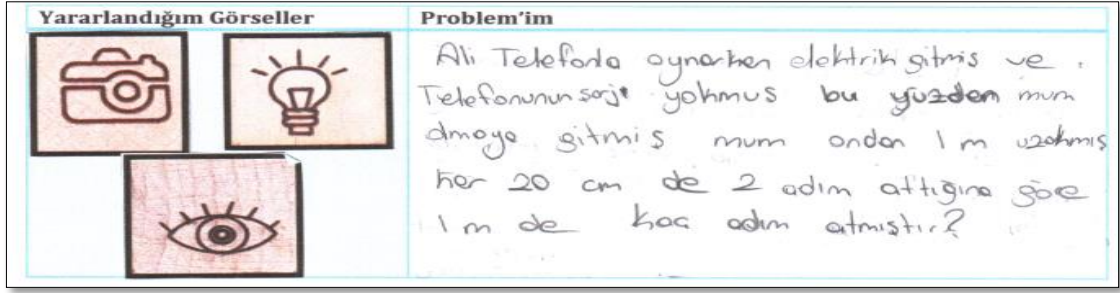 Yararlandığım Görseller
Problem'im
Ali Telefonla oynarken elektrik gitmiş ve
Telefonunun şarjı yokmuş bu yüzden mum
almaya gitmiş mum ondan 1 m uzakmış
her 20 cm de 2 adım attığına göre
1 m de kaç adım atmıştır?